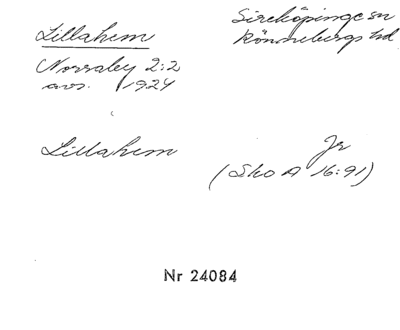 Lillahem
Sireköpinge sn
Rönnebergs hd
Norraby 2:2
avs. 1924
Lillahem
Jr
(Sko A 16:91)
Nr 24084